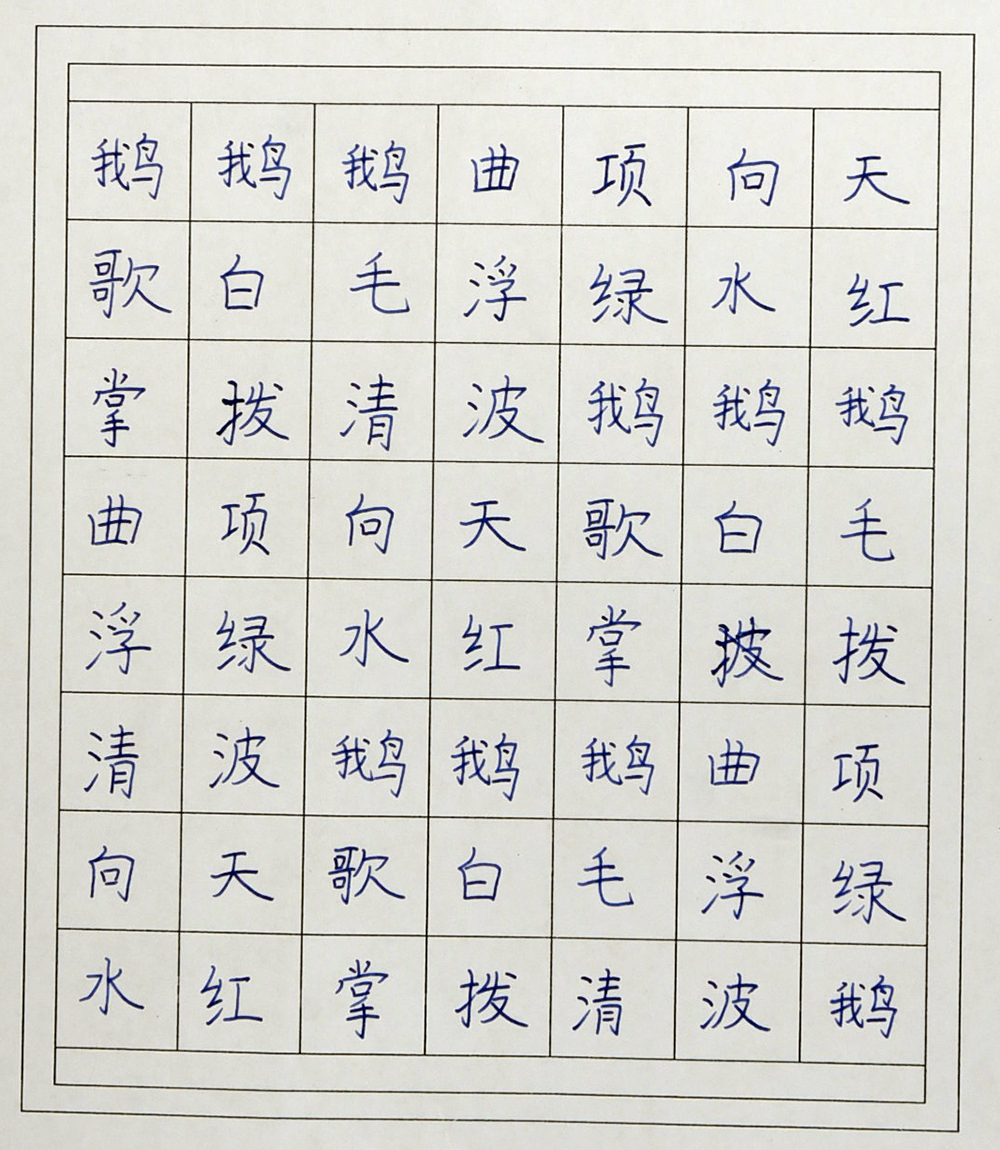 鹅鹅鹅曲项向天
歌白毛浮绿水红
掌拨清波鹅鹅鹅
曲项向天歌白毛
浮绿水红掌披拨
清波鹅鹅鹅曲项
向天歌白毛浮绿
水红掌拨清波鹅